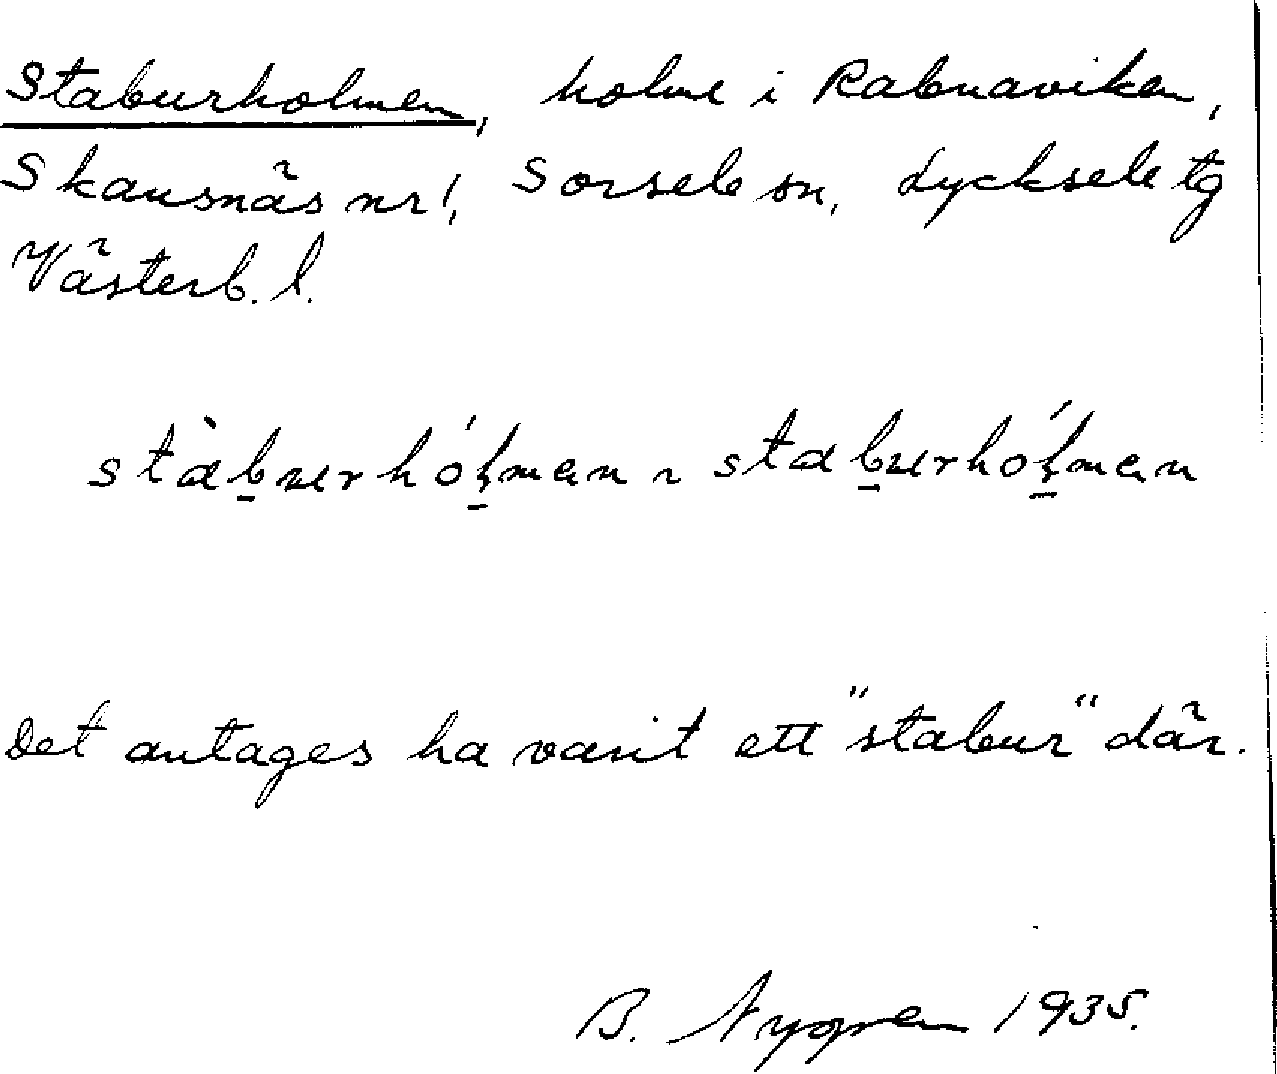 Staburholmen, holme i Rabnaviken,
Skansnäs nr 1, Sorsele sn, Lycksele tg
Västerb. l.
stàbu̶rhólmen ~ staburhólmen
Det antages ha varit ett "stabur" där.
B. Nygren 1935.